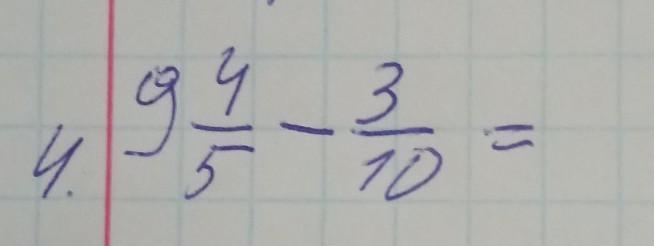 4. 9 4/5 - 3/10 =